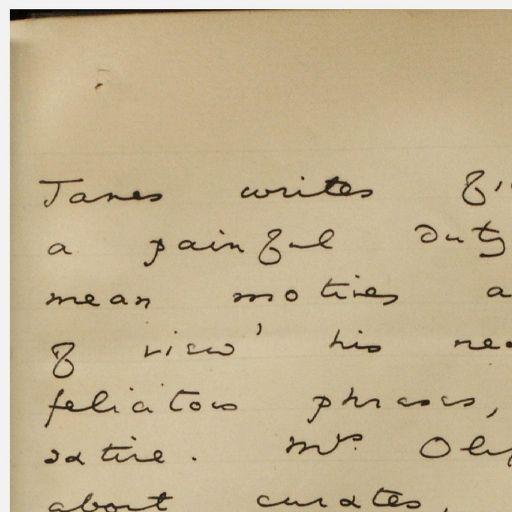 James writes
a painful duty
mean motives a
of view' his
felicitous phrases,
satire. Mrs.
about curates,